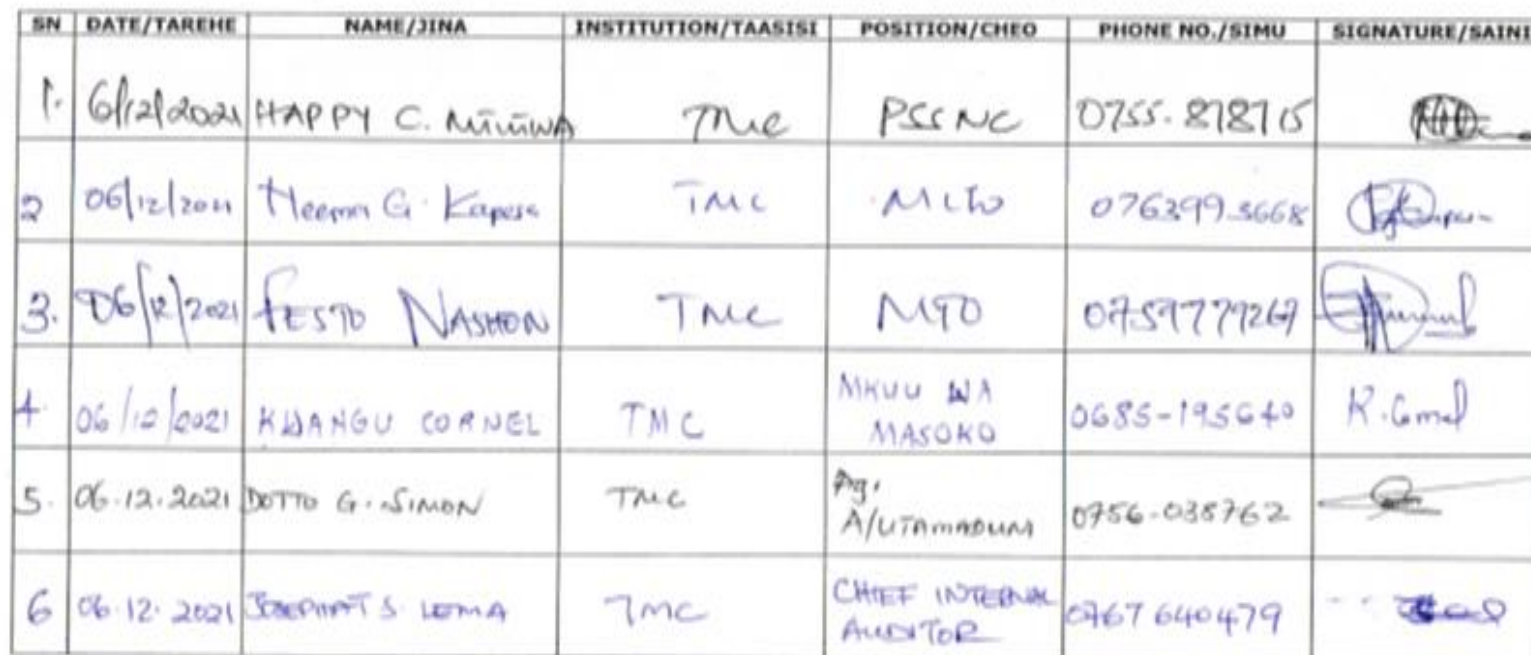 SN DATE/TAREHE NAME/JINA INSTITUTION/TAASISI POSITION/CHEO PHONE NO./SIMU SIGNATURE/SAINI
1. 6/12/2021 HAPPY C. TMC PSSNC 0755-878715
2 06/12/2021 Neema G. TMC
3. 06/12/2021 FESTO NASHON TMC 0759779267
4 06/12/2021 KWANGU CORNEL TMC MKUU WA MASOKO 0685-195640 K.Cornel
5. 06.12.2021 DOTTO G. SIMON TMC Ag. A/UTAMADUNI 0756-038762
6 06.12.2021 JOSEPHAT S. LEMA TMC CHIEF INTERNAL AUDITOR 0767 640479